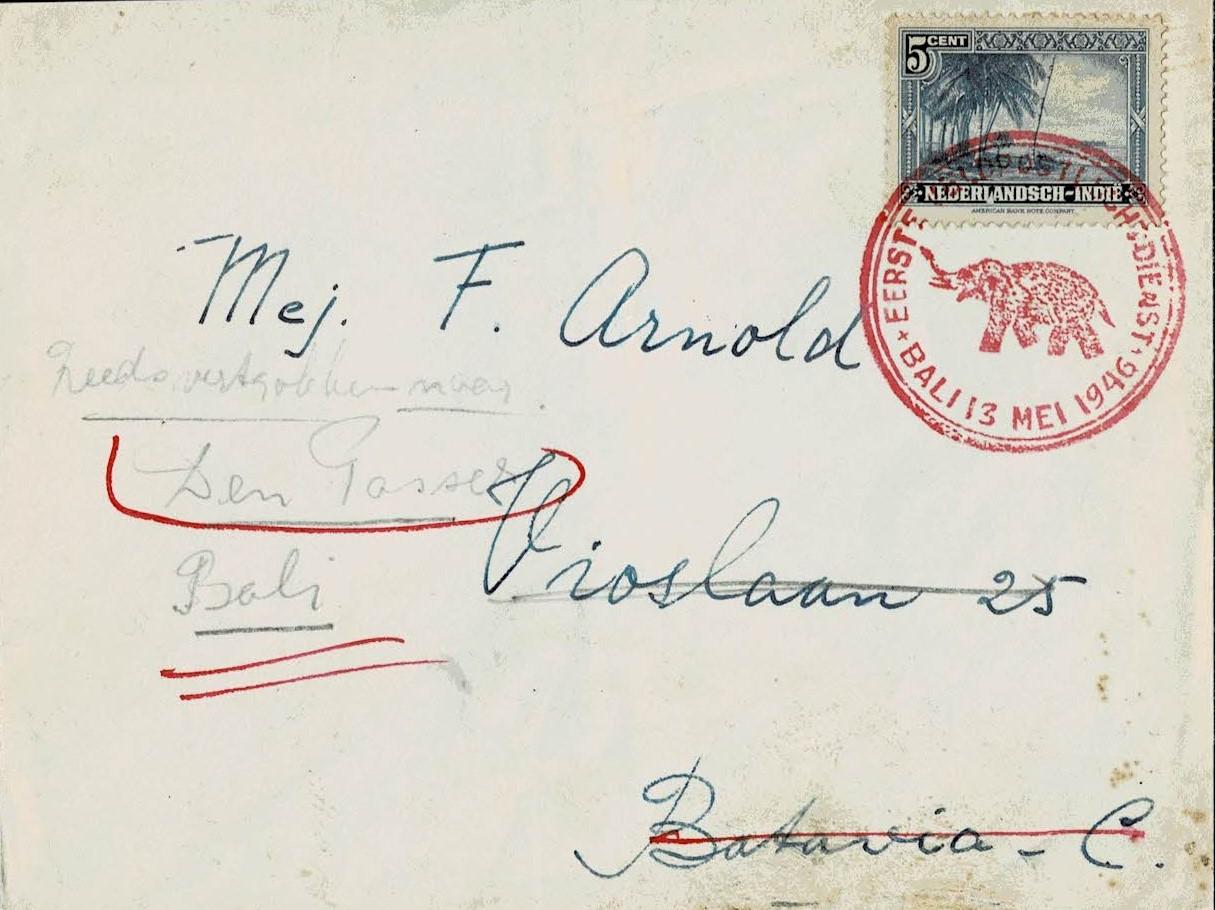 5 CENT
NEDERLANDSCH-INDIË
AMERICAN BANK NOTE COMPANY
EERSTE DIENST
BALI 13 MEI 1946
Mej. F. Arnold
Reeds vertrokken naar
Den Passer
Vioslaan 25
Bali
Batavia - C.